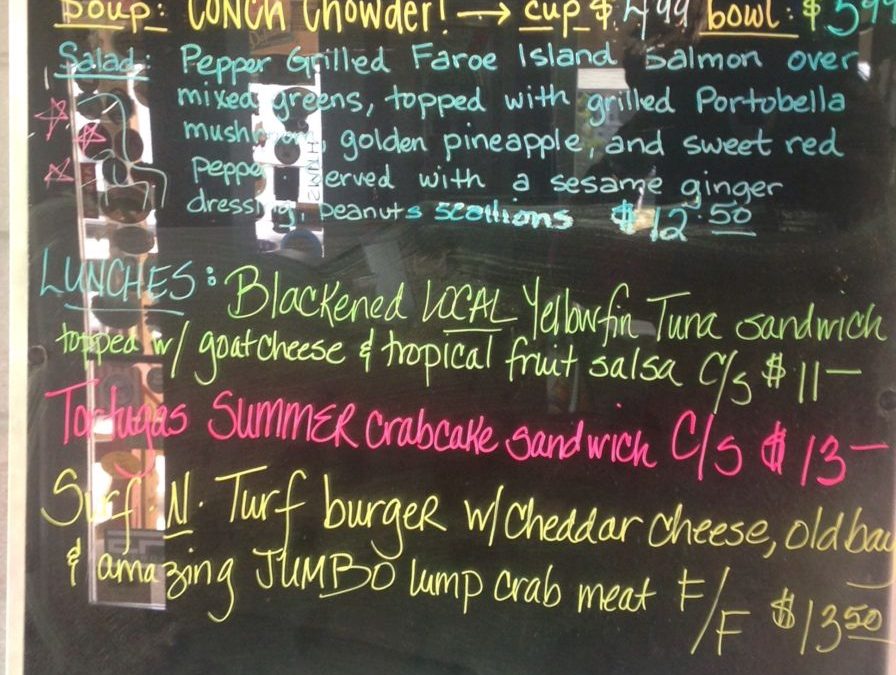 Soup: CONCH Chowder! → cup $4.99 bowl: $5.99
Salad: Pepper Grilled Faroe Island Salmon over
mixed greens, topped with grilled Portobella
mushrooms, golden pineapple, and sweet red
Pepper served with a sesame ginger
dressing, peanuts scallions $12.50
LUNCHES: Blackened LOCAL Yellowfin Tuna sandwich
topped w/ goat cheese & tropical fruit salsa C/S $11—
Tortugas SUMMER crabcake sandwich C/S $13—
Surf.N.Turf burger w/cheddar cheese, old bay
& amazing JUMBO lump crab meat F/F $13.50